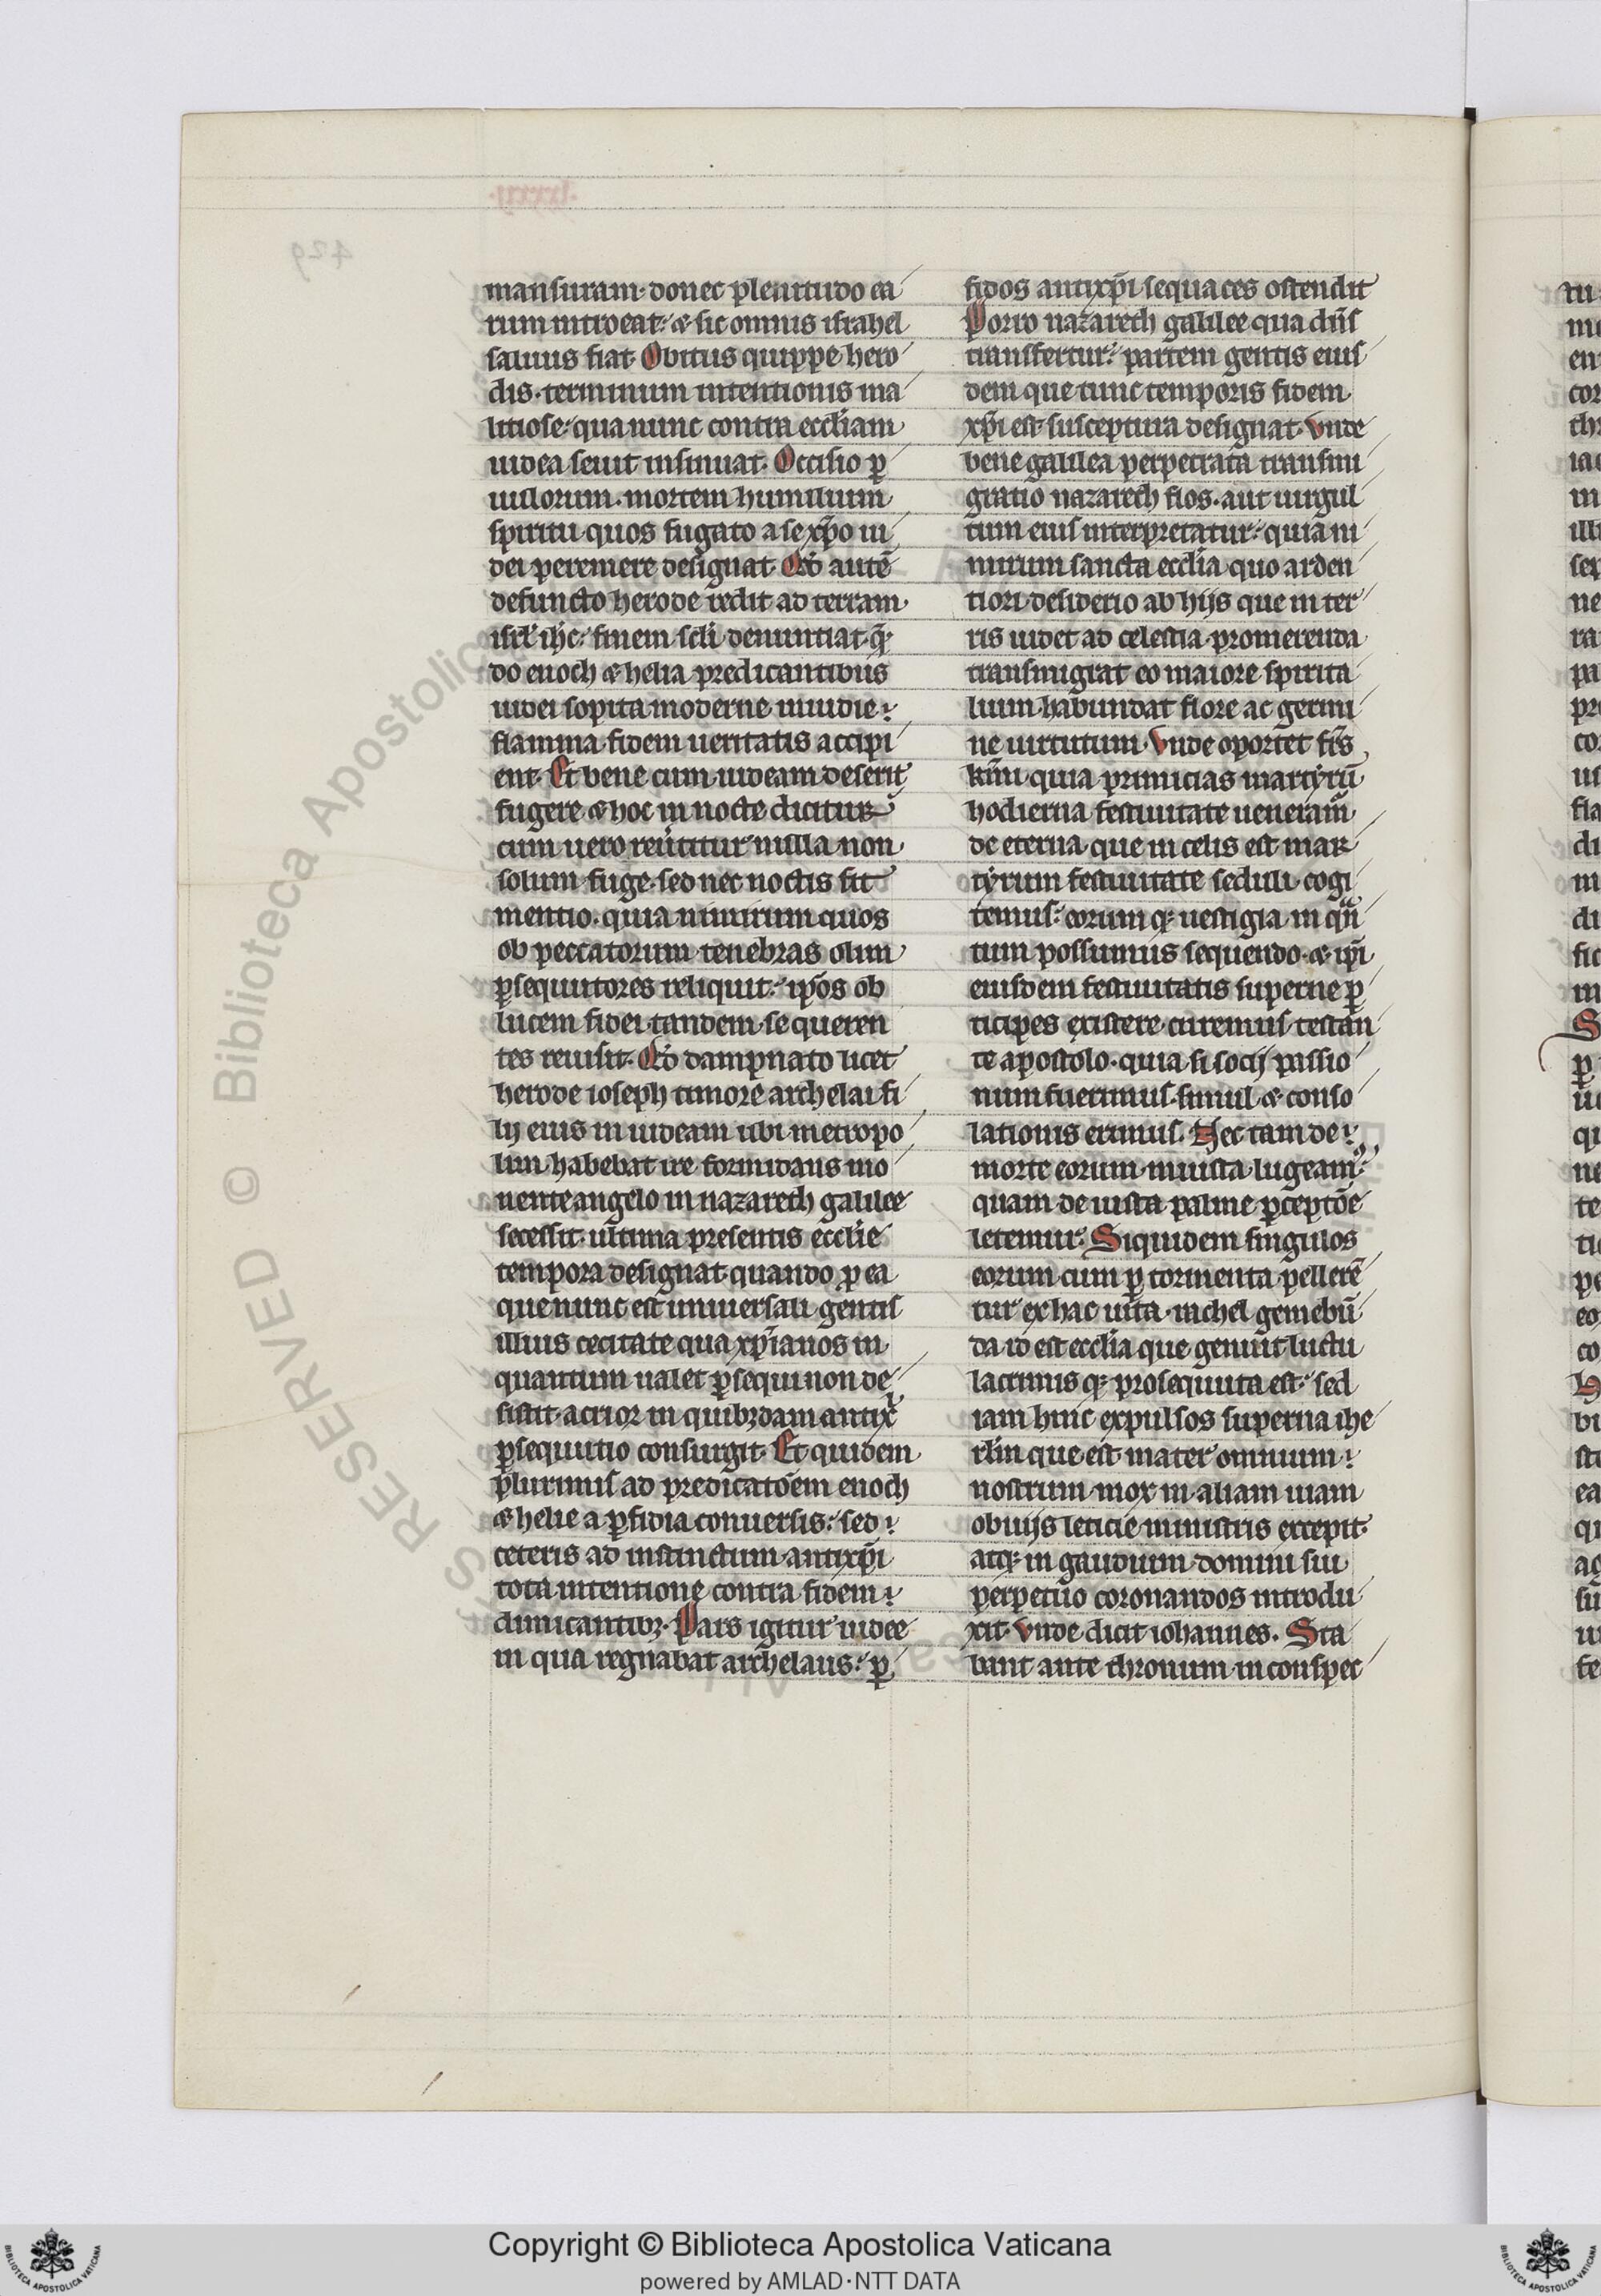 mansuram·donec plenitudo ea
rum introeat:⁊ sic omnis israhel
saluus fiat· Obitus quippe hero
dis·terminum intentionis ma
litiose·qua nunc contra eccl̄iam
iudea seuit insinuat· Occisio ꝑ
uulorum·mortem humilium
spiritu·quos fugato a se xp̄o iu
dei peremere designat· Qd̓ autē
defuncto herode redit ad terram·
isrl̓ ih̓c: finem scl̓i denuntiat·qn̄
do enoch ⁊ helia predicantibus
iudei sopita moderne inuidie
flamma·fidem ueritatis accipi
ent· Et bene cum iudeam deserit
fugere ⁊ hoc in nocte dicitur
cum uero reūtitur nulla non
solum fuge·sed nec noctis fit
mentio·quia nimirum quos
ob peccatorum tenebras olim
ꝑsequutores reliquit: ip̄os ob
lucem fidei tandem se queren
tes reuisit· Qd̓ dampnato licet
herode ioseph timore archelai fi
lij eius in iudeam ubi metropo
lim habebat ire formidans mo
nente angelo in nazareth galilee
secessit·ultima presentis eccl̄ie
tempora designat·quando ꝑ ea
que nunc est uniuersali gentis
illius cecitate qua xp̄ianos in
quantum ualet ꝑsequi non de
sistit·acrior in quibꝫdam antix̄
ꝑsequutio consurgit· Et quidem
plurimis ad predicatōem enoch
⁊ helie a ꝑfidia conuersis: sed
ceteris ad instinctum antixp̄i
tota intentione contra fidem
dimicantibꝫ· Pars igitur iudee
in qua regnabat archelaus: ꝑ
fidos antixp̄i sequaces ostendit
Porro nazareth galilee qua dn̄s
transfertur: partem gentis eius
dem que tunc temporis fidem
xp̄i est susceptura designat· Vnde
bene galilea perpetrata transmi
gratio nazareth flos·aut uirgul
tum eius interpretatur: quia ni
mirum sancta eccl̄ia quo arden
tiori desiderio ab hijs que in ter
ris uidet ad celestia promerenda
transmigrat eo maiore spirita
lium habundat flore ac germi
ne uirtutum· Vnde oportet fr̄s
kr̄mi quia primicias martyrū
hodierna festiuitate ueneram̄
de eterna que in celis est mar
tyrum festiuitate seduli cogi
temus: eorum qꝫ uestigia in qn̄
tum possumus sequendo·⁊ ip̄i
eiusdem festiuitatis superne ꝑ
ticipes existere curemus testan
te apostolo·quia si socij passio
num fuerimus·simul ⁊ conso
lationis erimus· Nec tam de
morte eorum iniusta lugeam⁹:
quam de iusta palme ꝑceptōe
letemur: Siquidem singulos
eorum cum ꝑ tormenta pellerē
tur ex hac uita·rachel gemebū
da id est eccl̄ia que genuit luctu
lacrimis qꝫ prosequuta est: sed
iam hinc expulsos superna ihe
rl̄m que est mater omnium
nostrum mox in aliam uiam
obuijs leticie ministris excepit·
atqꝫ in gaudium domini sui
perpetuo coronandos introdu
xit· Vnde dicit iohannes· Sta
bant ante thronum in conspec
Copyright © Biblioteca Apostolica Vaticana
powered by AMLAD·NTT DATA